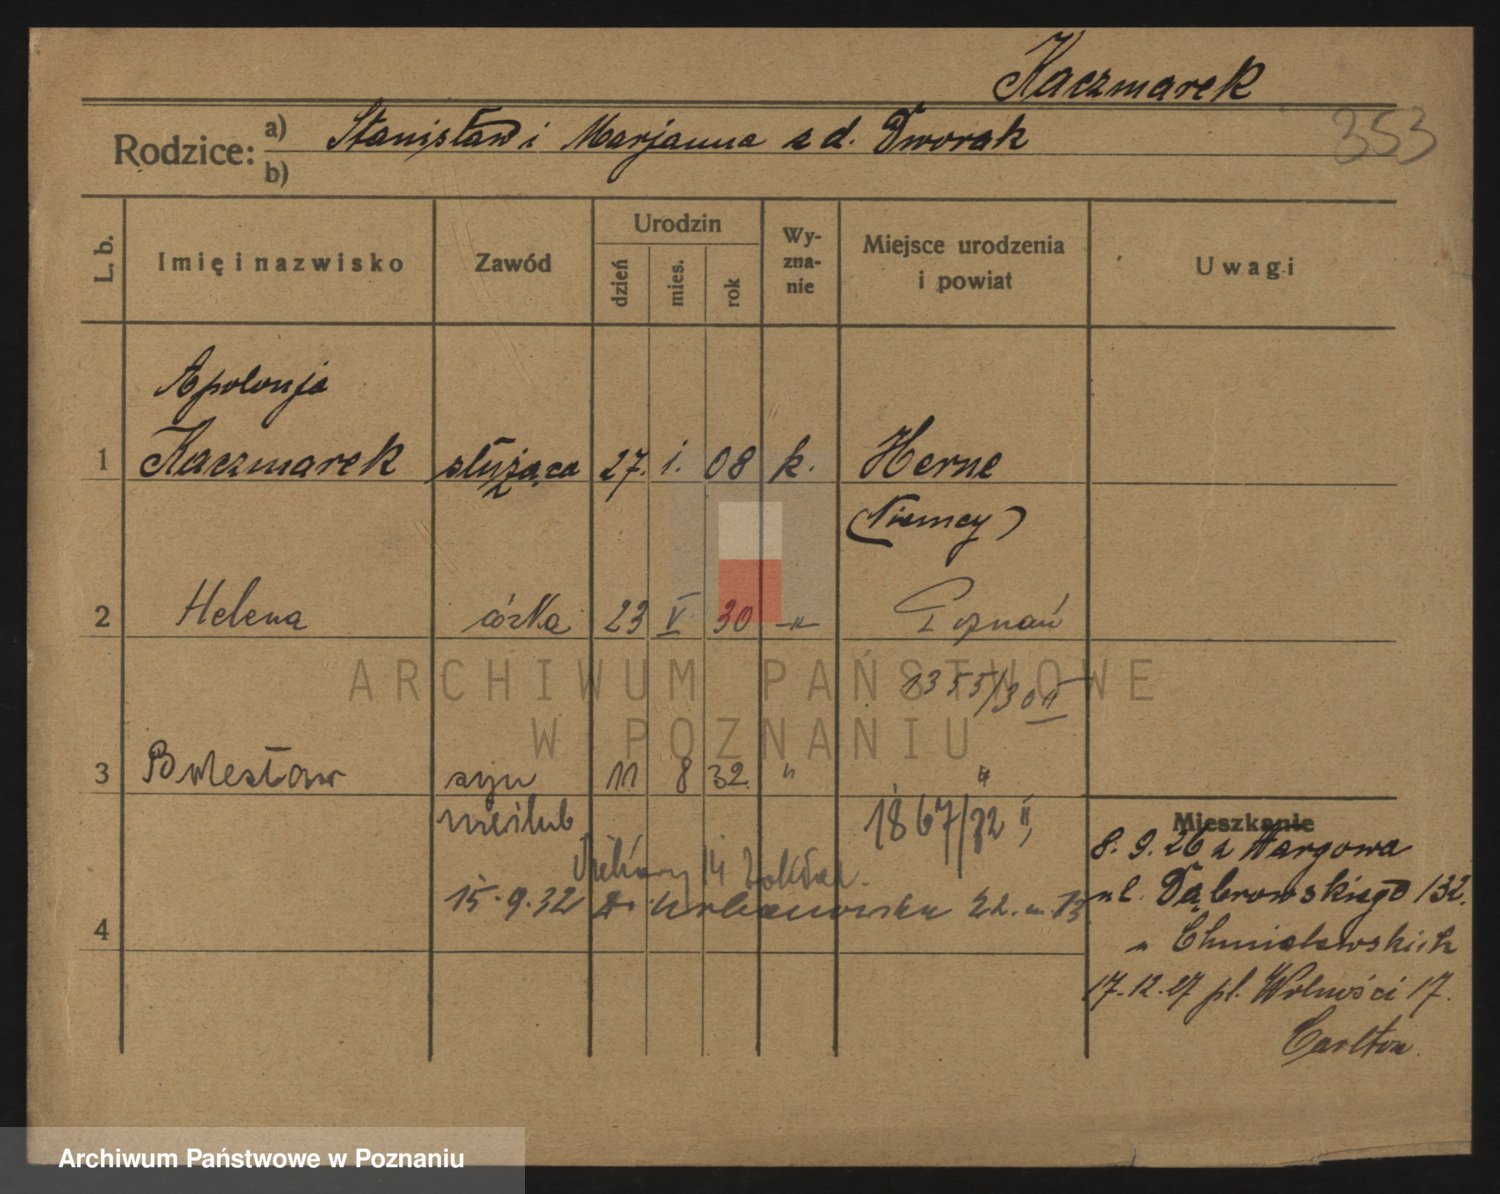 Kaczmarek
353
Rodzice: a) Stanisław i Marjanna z d. Dworak
b)
L. b. Imię i nazwisko Zawód Urodzin dzień mies. rok Wyznanie Miejsce urodzenia i powiat Uwagi
Apolonja
1 Kaczmarek służąca 27. i. 08 k. Herne
(Niemcy)
2 Helena córka 23 V 30 -"- Poznań
1355/30 II
3 Bolesław syn 11 8 32 " "
nieślub 1867/32 II
Mieszkanie
8. 9. 26 z Targowa
ul. Dąbrowskiego 132.
u Chmielewskich
17.12.27 pl. Wolności 17.
Carlton.
14
15.9.32
4
ARCHIWUM PAŃSTWOWE
W POZNANIU
Archiwum Państwowe w Poznaniu